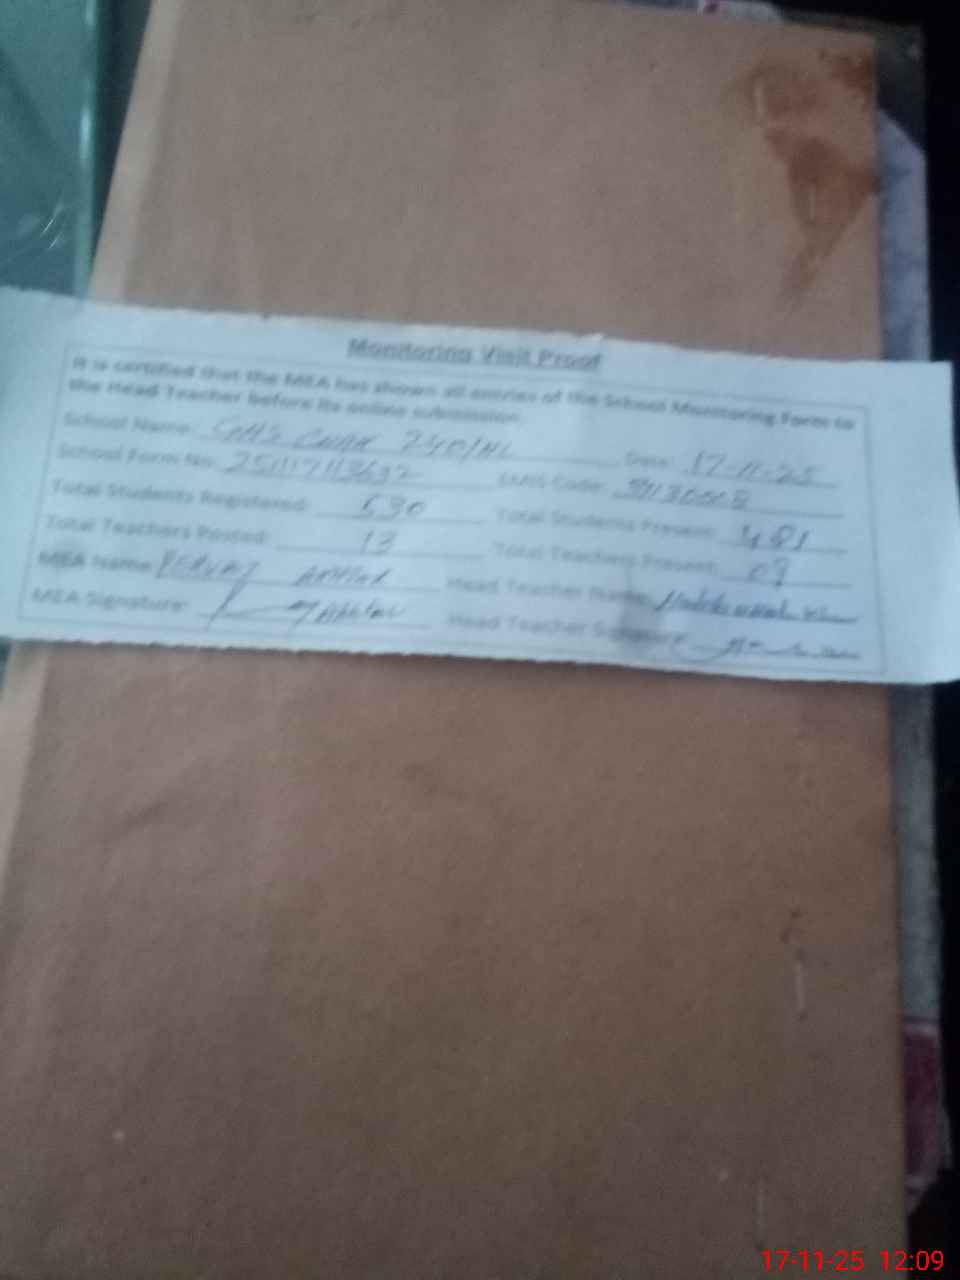 Monitoring Visit Proof
It is certified that the MEA has shown all entries of the School Monitoring Form to
the Head Teacher before its online submission.
School Name: GHS CHAK 240/HL Date: 17-11-25
School Form No. EMIS Code:
Total Students Registered: 630 Total Students Present: 481
Total Teachers Posted: 13 Total Teachers Present: 09
MEA Name: PERVAZ AKHTAR Head Teacher Name:
MEA Signature: Head Teacher Signature:
17-11-25 12:09